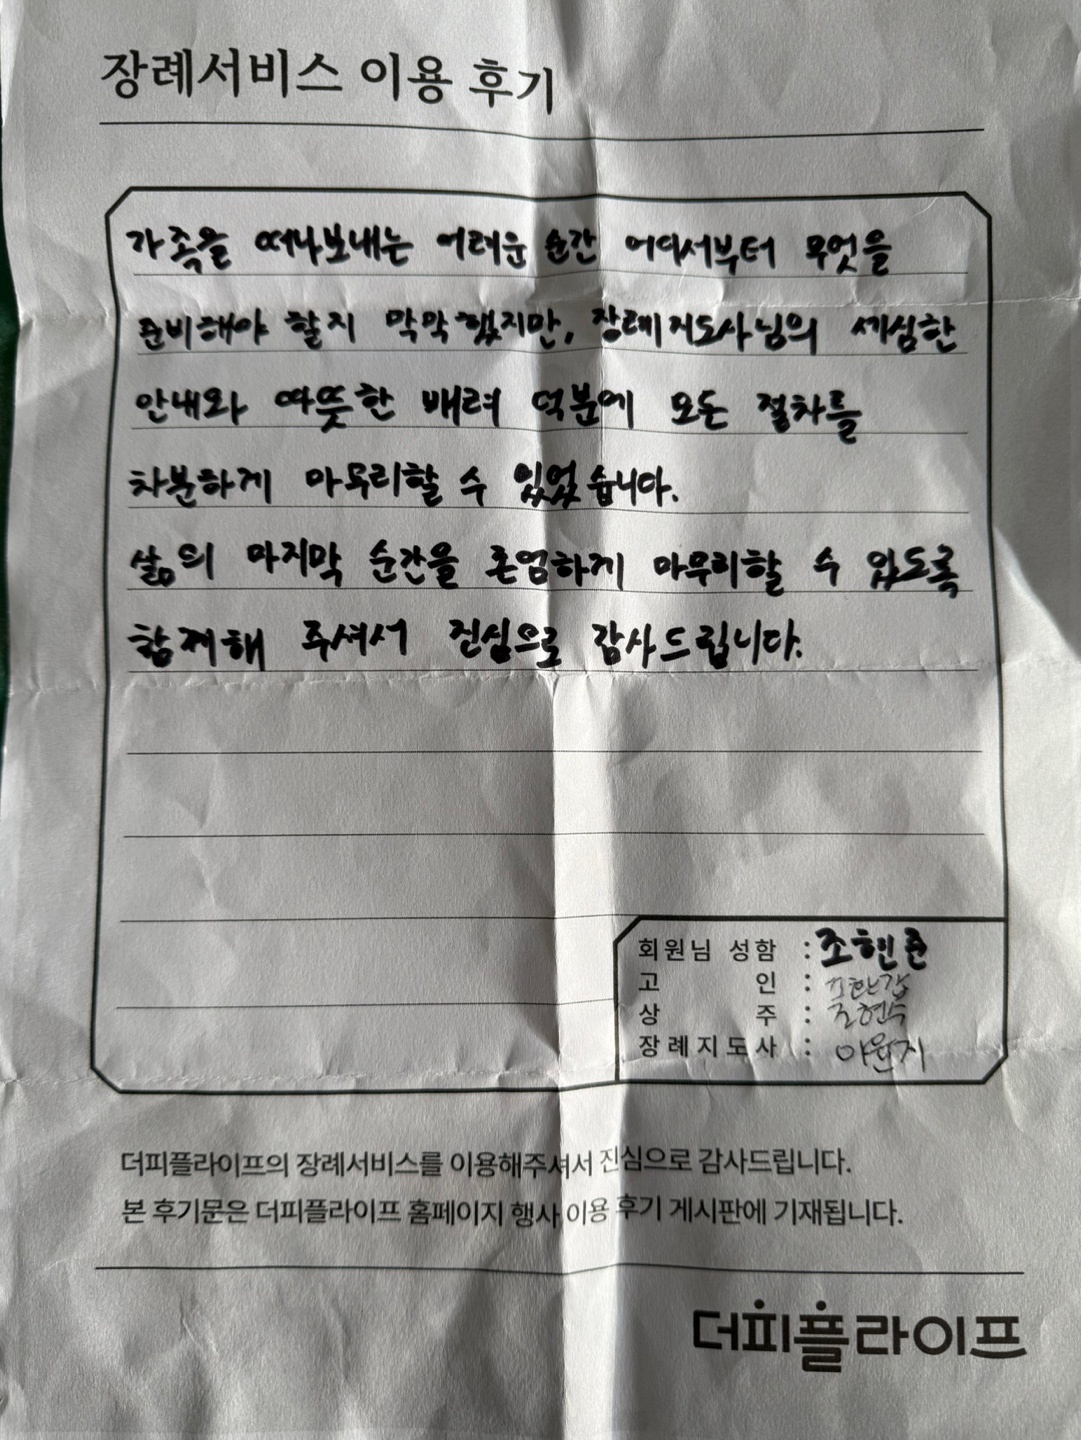 장례서비스 이용 후기
가족을 떠나보내는 어려운 순간 어디서부터 무엇을
준비해야 할지 막막했지만, 장례지도사님의 세심한
안내와 따뜻한 배려 덕분에 모든 절차를
차분하게 마무리할 수 있었습니다.
삶의 마지막 순간을 존엄하게 마무리할 수 있도록
함께해 주셔서 진심으로 감사드립니다.
회원님 성함 : 조현준
고 인 :
상 주 : 조현수
장례지도사 : 이윤지
더피플라이프의 장례서비스를 이용해주셔서 진심으로 감사드립니다.
본 후기문은 더피플라이프 홈페이지 행사 이용 후기 게시판에 기재됩니다.
더피플라이프